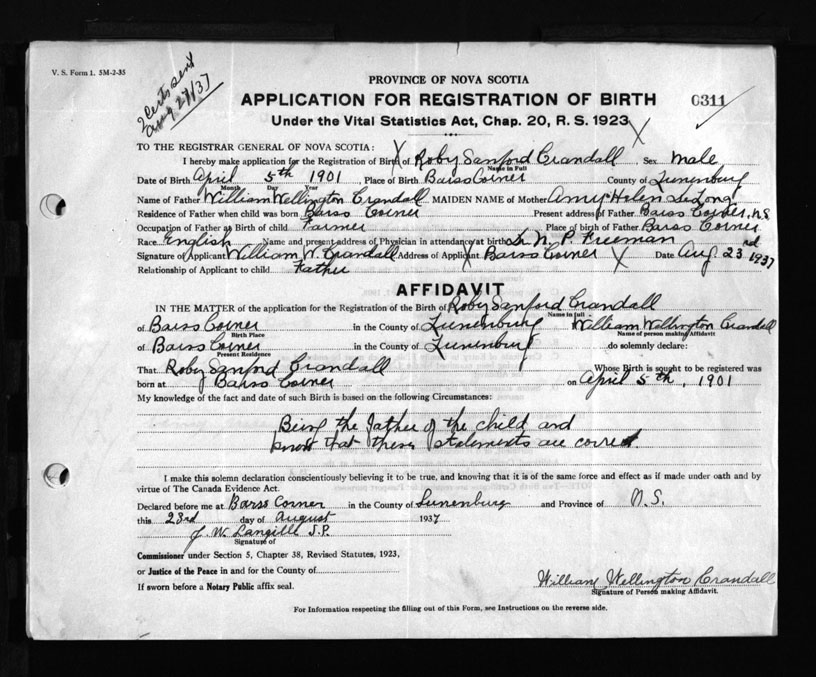 V. S. Form 1. 5M-2-35
2 Certs sent
Aug 27/37
PROVINCE OF NOVA SCOTIA
APPLICATION FOR REGISTRATION OF BIRTH
0311
Under the Vital Statistics Act, Chap. 20, R. S. 1923
TO THE REGISTRAR GENERAL OF NOVA SCOTIA:
I hereby make application for the Registration of Birth of Roby Sanford Crandall, Sex Male
Name in Full
Date of Birth April 5th 1901, Place of Birth Barss Corner County of Lunenburg
Month Day Year
Name of Father William Wellington Crandall MAIDEN NAME of Mother Amy Helen LeLong
Residence of Father when child was born Barss Corner Present address of Father Barss Corner, N.S
Occupation of Father at Birth of child Farmer Place of birth of Father Barss Corner
Race English Name and present address of Physician in attendance at birth Dr N. P. Freeman
Signature of Applicant William W. Crandall Address of Applicant Barss Corner Date Aug 23rd 1937
Relationship of Applicant to child Father
AFFIDAVIT
IN THE MATTER of the application for the Registration of the Birth of Roby Sanford Crandall
Name in full
of Barss Corner in the County of Lunenburg William Wellington Crandall
Birth Place Name of person making Affidavit
of Barss Corner in the County of Lunenburg do solemnly declare:
Present Residence
That Roby Sanford Crandall Whose Birth is sought to be registered was
born at Barss Corner on April 5th, 1901
My knowledge of the fact and date of such Birth is based on the following Circumstances:
Being the father of the child and
know that these statements are correct
I make this solemn declaration conscientiously believing it to be true, and knowing that it is of the same force and effect as if made under oath and by
virtue of The Canada Evidence Act.
Declared before me at Barss Corner in the County of Lunenburg and Province of N.S.
this 23rd day of August 1937
J. W. Langille J.P.
Signature of
Commissioner under Section 5, Chapter 38, Revised Statutes, 1923,
or Justice of the Peace in and for the County of
If sworn before a Notary Public affix seal.
William Wellington Crandall
Signature of Person making Affidavit.
For Information respecting the filling out of this Form, see Instructions on the reverse side.